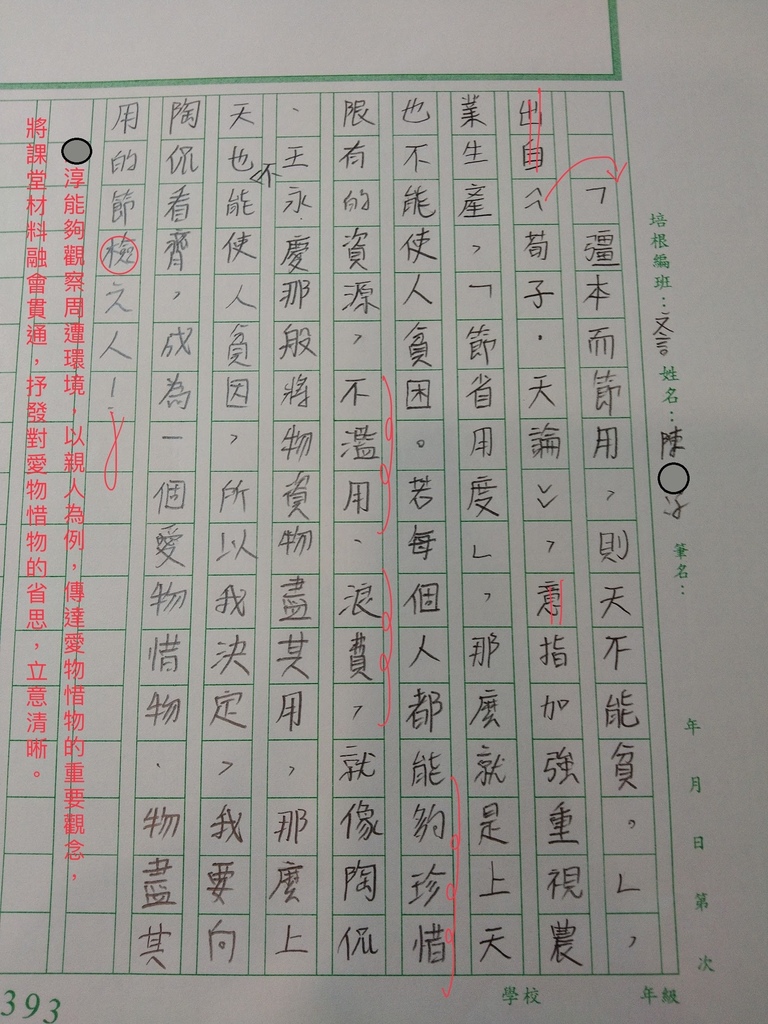 培根編班：文言 姓名：陳 筆名：
年 月 日 第 次
學校 年級
「彊本而節用，則天不能貧。」，
出自《荀子·天論》，意指加強重視農
業生產，「節省用度」，那麼就是上天
也不能使人貧困。若每個人都能夠珍惜
限有的資源，不濫用、浪費，就像陶侃
、王永慶那般將物資物盡其用，那麼上
天也不能使人貧因，所以我決定，我要向
陶侃看齊，成為一個愛物惜物、物盡其
用的節檢之人！
淳能夠觀察周遭環境，以親人為例，傳達愛物惜物的重要觀念，
將課堂材料融會貫通，抒發對愛物惜物的省思，立意清晰。
393